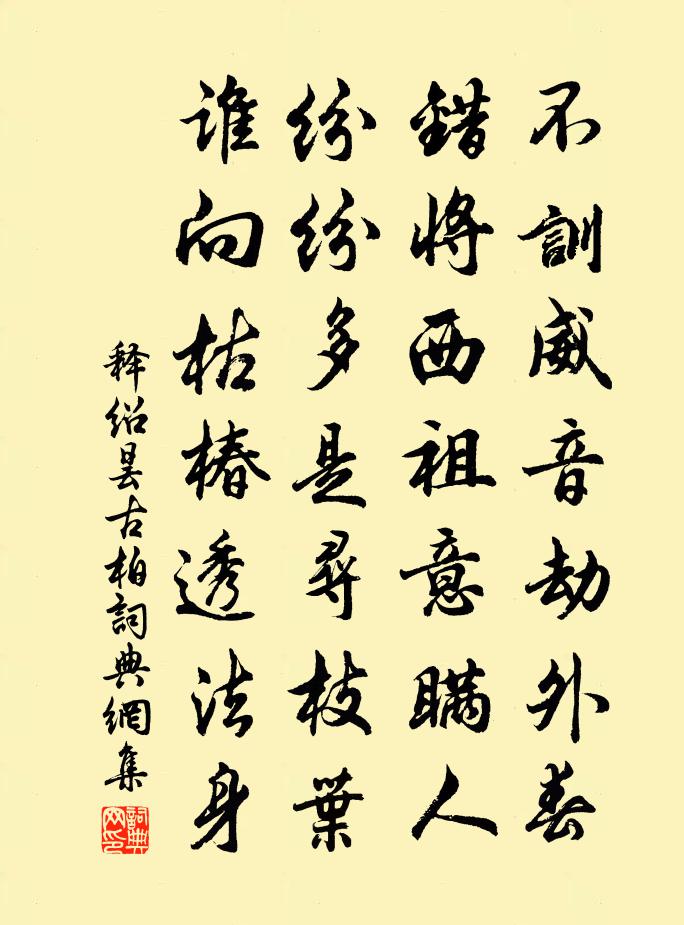 不訓威音劫外春
錯將西祖意瞞人
紛紛多是尋枝葉
誰向枯椿透法身
释绍昙古柏詞典網集
詞典网印